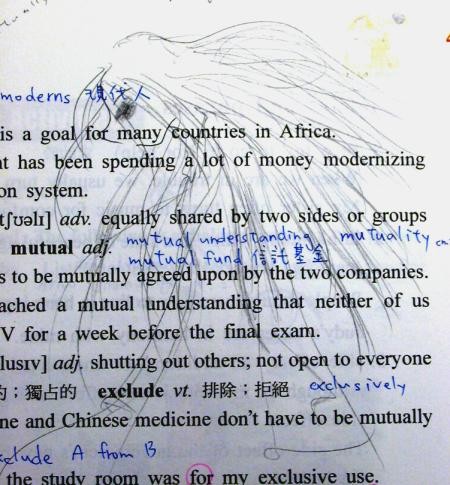 moderns 現代人
is a goal for many countries in Africa.
nt has been spending a lot of money modernizing
on system.
[tʃʊəlɪ] adv. equally shared by two sides or groups
mutual adj. mutual understanding mutuality
mutual fund 信託基金
s to be mutually agreed upon by the two companies.
ached a mutual understanding that neither of us
V for a week before the final exam.
lusɪv] adj. shutting out others; not open to everyone
的；獨占的 exclude vt. 排除；拒絕 exclusively
ne and Chinese medicine don't have to be mutually
clude A from B
the study room was for my exclusive use.